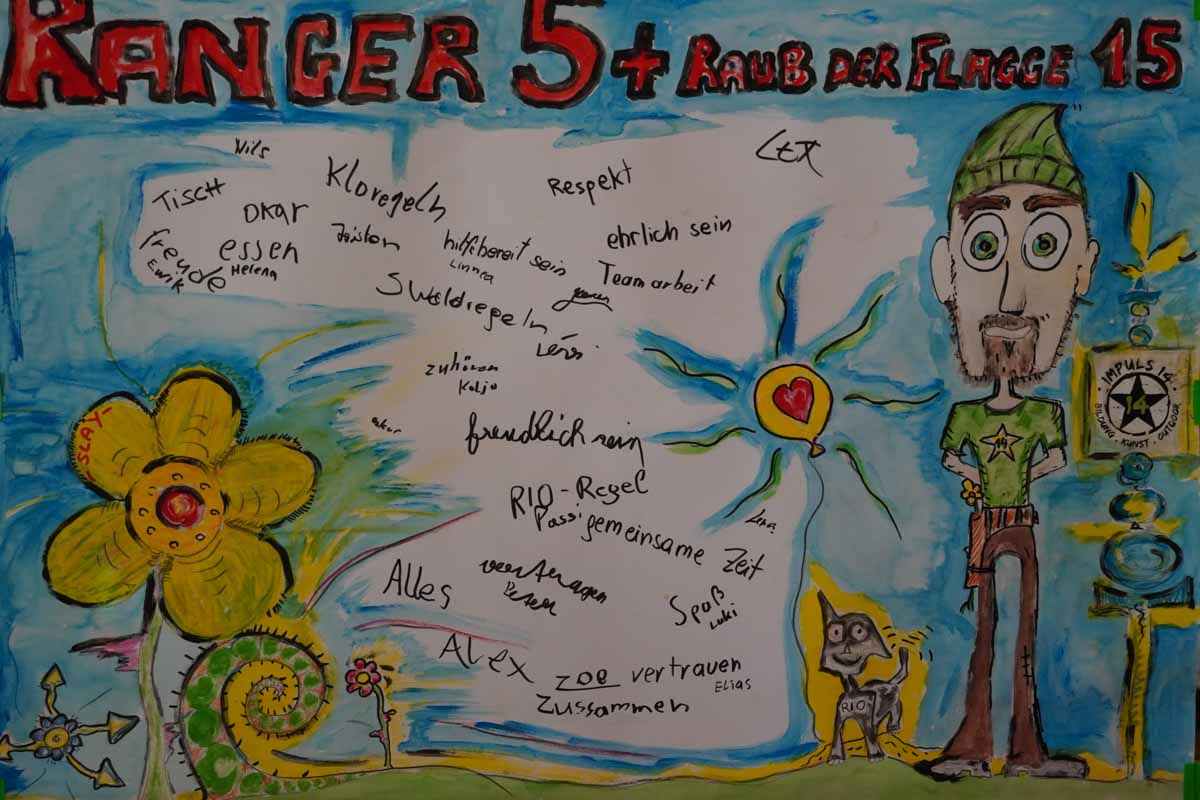 RANGER 5 + RAUB DER FLAGGE 15
Nils
LEX
TISCH
Kloregeln
Respekt
OKAR
freude
Ewik
essen
Helena
hilfsbereit sein
Linnea
ehrlich sein
Teamarbeit
5 Waldregeln
zuhören
Kolja
freudlich sein
SLAY
RIO-Regel
Passi
gemeinsame Zeit
Lina
Alles
vertragen
Spaß
Luki
ALEX
ZOE
vertrauen
ELIAS
Zussammen
RIO
14
IMPULS 14
14
BILDUNG · KUNST · OUTDOOR